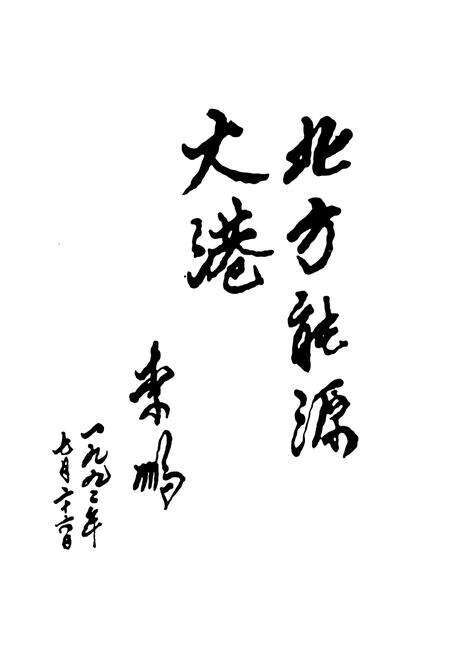 北方能源
大港
李鹏
一九九二年
七月二十六日